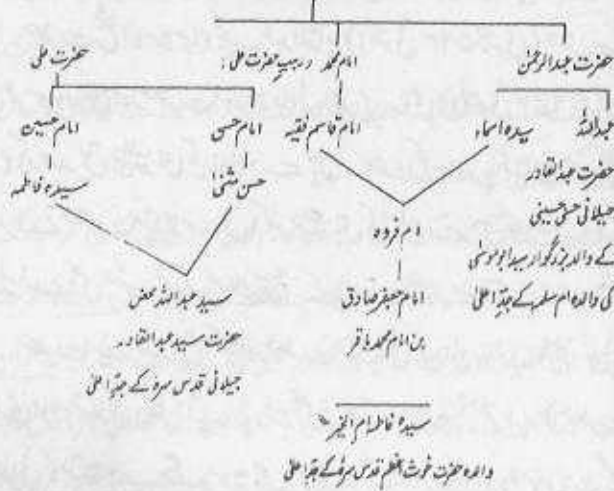 حضرت عبدالرحمٰن
امام محمد ربیب حضرت علی:
حضرت علی
عبداللہ
سیدہ اسماء
امام قاسم فقیہ
امام حسن
امام حسین
حضرت عبدالقادر
جیلانی حسنی حسینی
کے والد بزرگوار سید ابو موسٰی
کی والدہ ام سلمہ کے جدِّ اعلیٰ
حسن مثنیٰ
سیدہ فاطمہ
ام فروہ
امام جعفر صادق
بن امام محمد باقر
سید عبداللہ محض
حضرت سید عبدالقادر
جیلانی قدس سرہ کے جدِّ اعلیٰ
سیدہ فاطمہ ام الخیر
والدہ حضرت غوث اعظم قدس سرہ کے جدِّ اعلیٰ